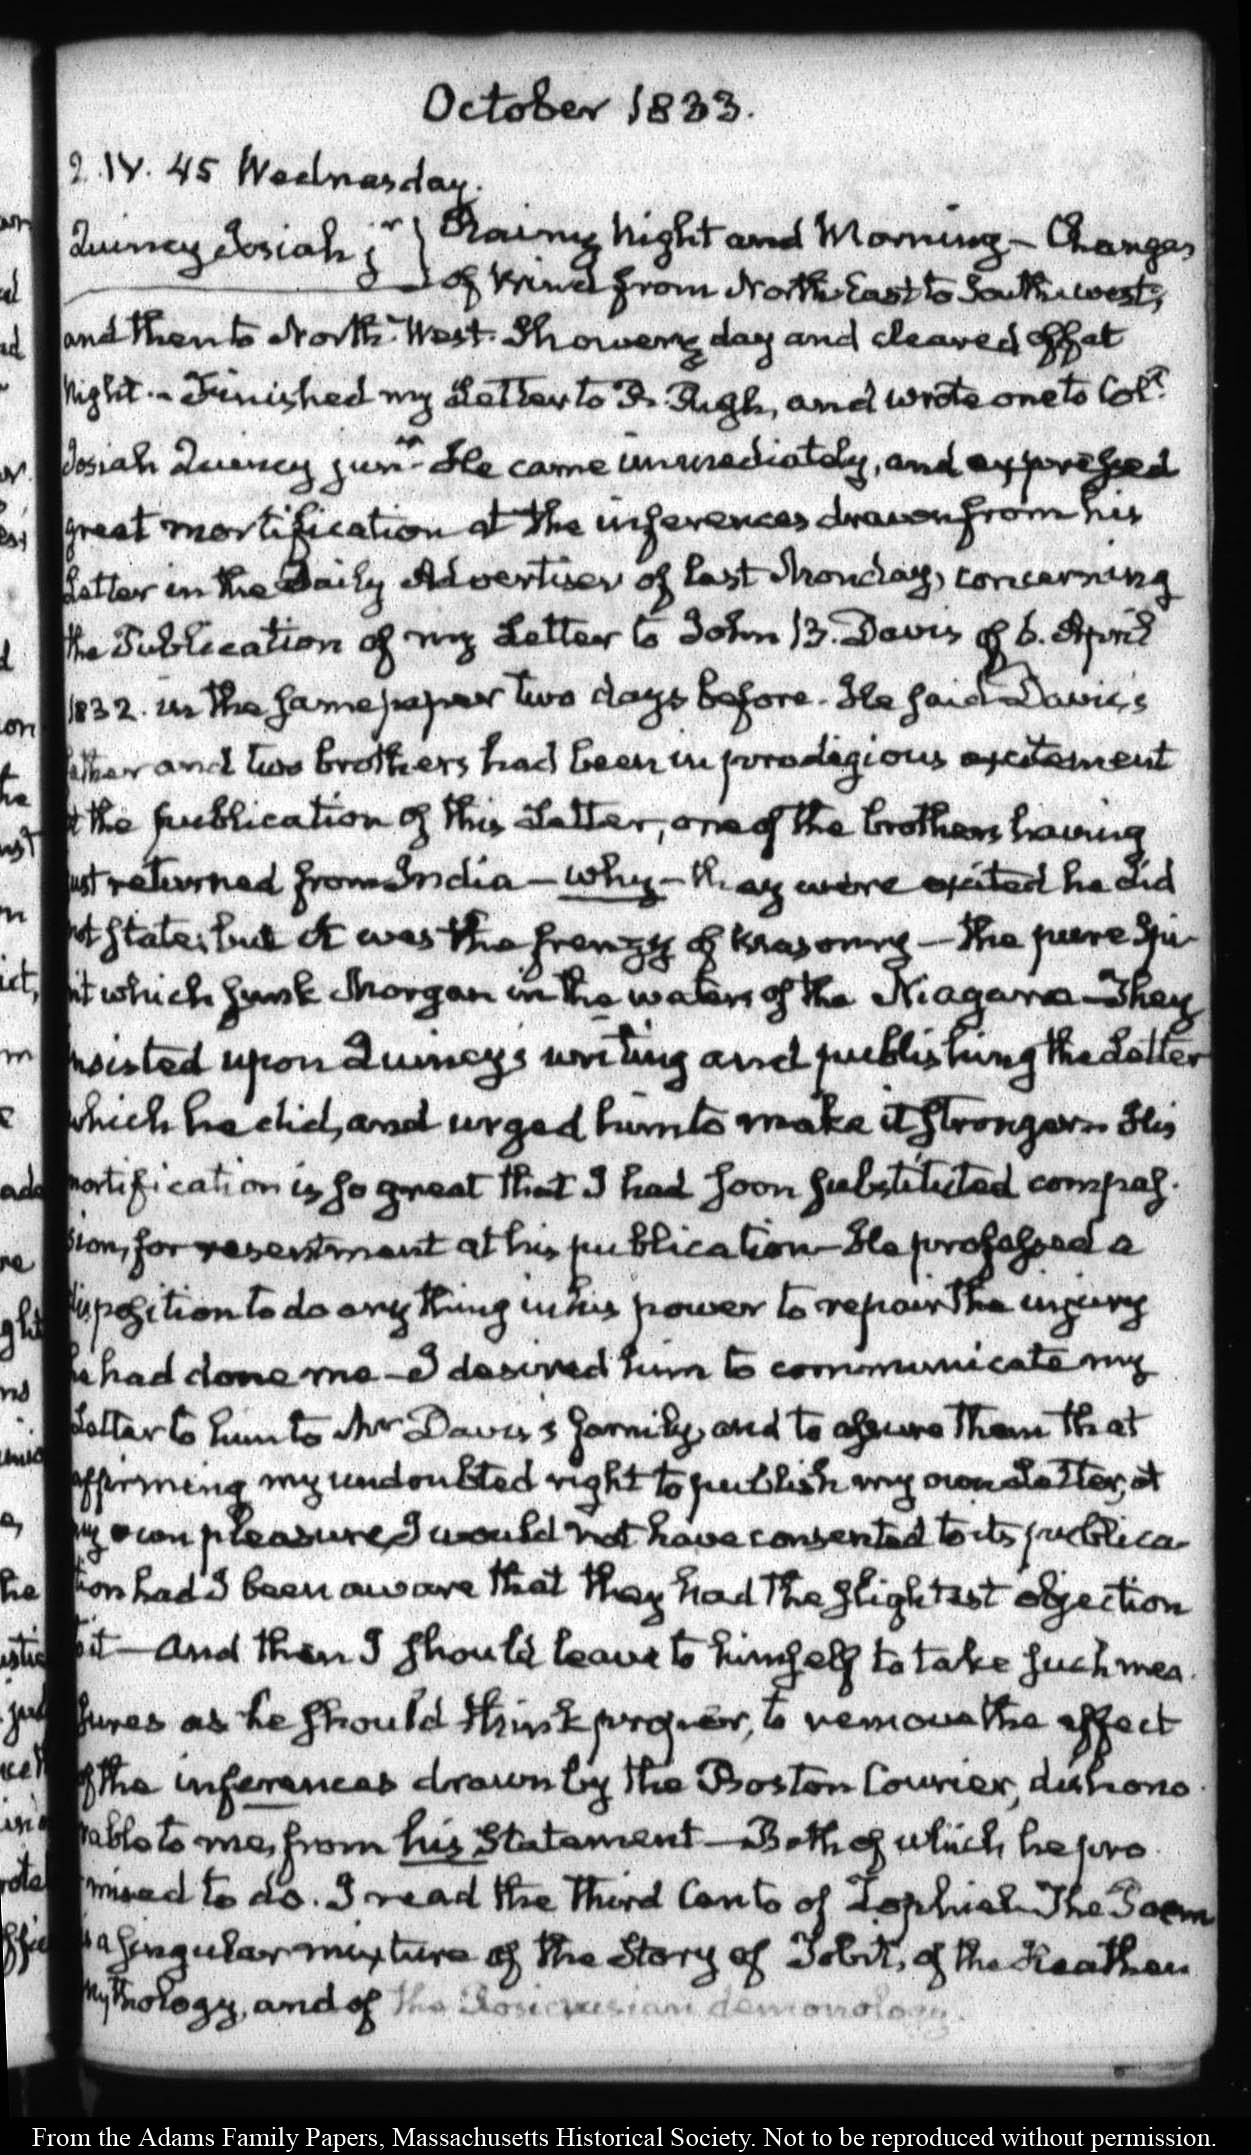 October 1833.
2. IV. 45 Wednesday.
Quincy Josiah jr } Rainy Night and Morning — Changes
of Wind from North East to South west,
and then to North-West. Showery day and cleared off at
Night. — Finished my Letter to B. Pugh, and wrote one to Coll.
Josiah Quincy junr. He came immediately, and expressed
great mortification at the inferences drawn from his
Letter in the Daily Advertiser of last Monday, concerning
the Publication of my Letter to John B. Davis of 6. April
1832. in the same paper two days before. He said Davis's
father and two brothers had been in prodigious excitement
at the publication of this Letter, one of the brothers having
just returned from India — why — they were excited he did
not state; but it was the frenzy of Masonry — the pure Spi-
rit which sunk Morgan in the waters of the Niagara — They
insisted upon Quincy's writing and publishing the Letter
which he did, and urged him to make it stronger. His
mortification is so great that I had soon substituted compas-
sion, for resentment at his publication — He professed a
disposition to do any thing in his power to repair the injury
he had done me — I desired him to communicate my
Letter to him to Mr Davis's family, and to assure them that
affirming my undoubted right to publish my own Letter, at
my own pleasure, I would not have consented to its publica-
tion had I been aware that they had the slightest objection
to it — and then I should leave to himself to take such mea-
sures as he should think proper, to remove the effect
of the inferences drawn by the Boston Courier, dishono-
rable to me, from his Statement — Both of which he pro-
mised to do. I read the third Canto of Zophiel — The Poem
is a singular mixture of the Story of Tobit, of the Heathen
Mythology, and of the Rosicrusian demonology.
From the Adams Family Papers, Massachusetts Historical Society. Not to be reproduced without permission.